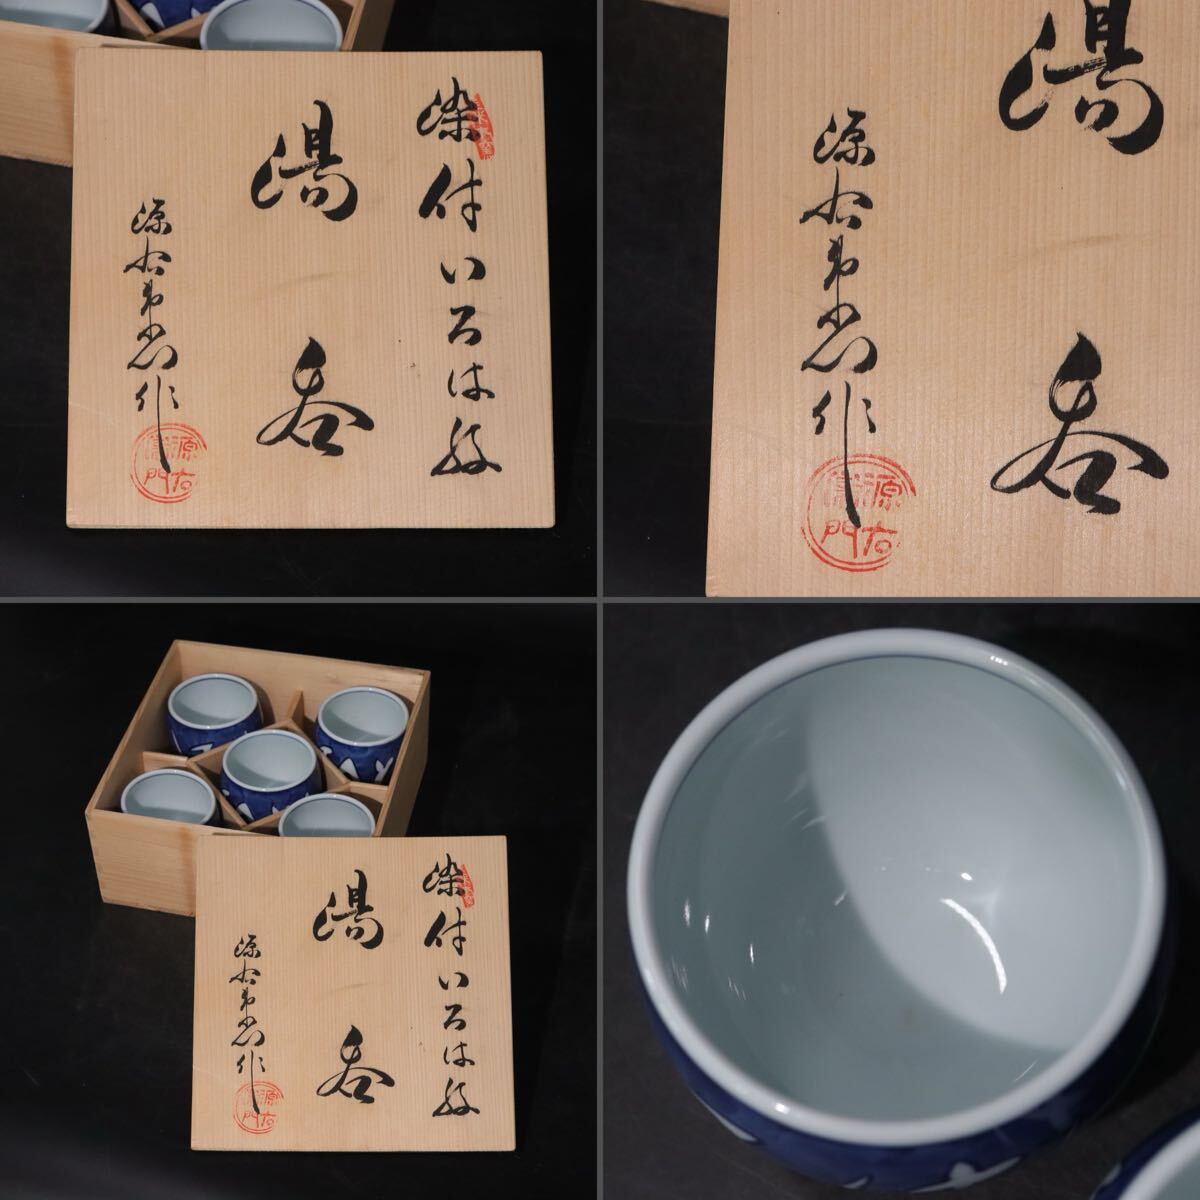 染付いろは紋
湯呑
源右衛門作
源右衛門
湯呑
源右衛門作
源右衛門
染付いろは紋
湯呑
源右衛門作
源右衛門